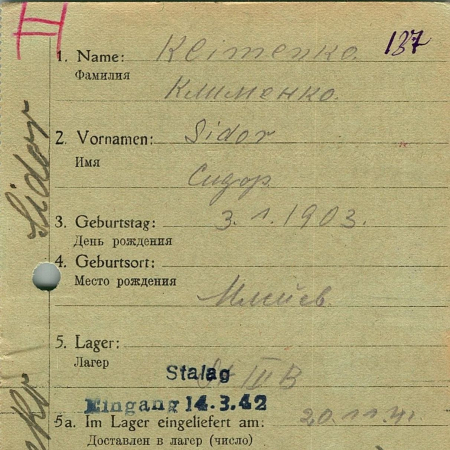 137
1. Name: Klimenko.
Фамилия
Клименко.
2. Vornamen: Sidor
Имя
Сидор.
3. Geburtstag: 3.1.1903.
День рождения
4. Geburtsort:
Место рождения
Млиев.
5. Lager:
Лагер
Stalag III B
Eingang 14.3.42
5a. Im Lager eingeliefert am: 20.11.41
Доставлен в лагер (число)
Sidor